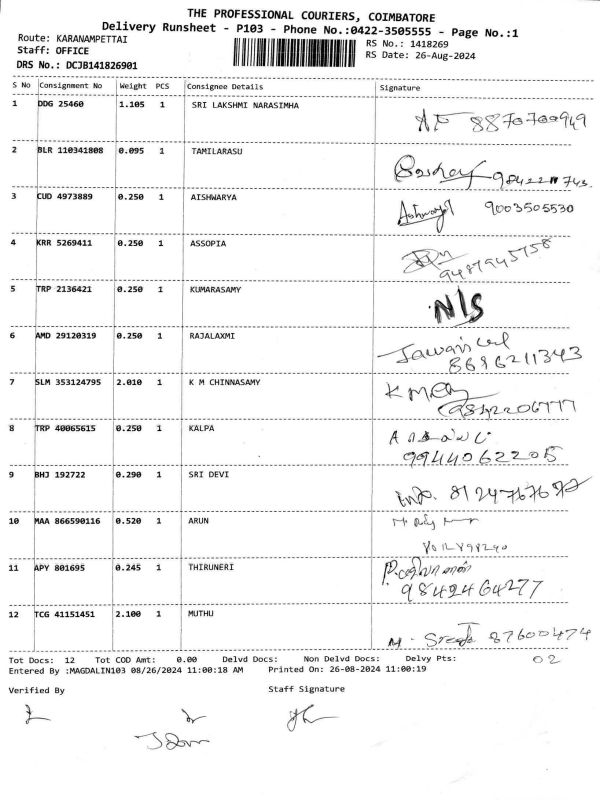 THE PROFESSIONAL COURIERS, COIMBATORE
Delivery Runsheet - P103 - Phone No.:0422-3505555 - Page No.:1
Route: KARANAMPETTAI RS No.: 1418269
Staff: OFFICE RS Date: 26-Aug-2024
DRS No.: DCJB141826901
S No Consignment No Weight PCS Consignee Details Signature
1 DDG 25460 1.105 1 SRI LAKSHMI NARASIMHA
8870700949
2 BLR 110341808 0.095 1 TAMILARASU
3 CUD 4973889 0.250 1 AISHWARYA
Aishwarya 9003505530
4 KRR 5269411 0.250 1 ASSOPIA
9487945758
5 TRP 2136421 0.250 1 KUMARASAMY
N/S
6 AMD 29120319 0.250 1 RAJALAXMI
8696211343
7 SLM 353124795 2.010 1 K M CHINNASAMY
9842206777
8 TRP 40065615 0.250 1 KALPA
9944062205
9 BHJ 192722 0.290 1 SRI DEVI
10 MAA 866590116 0.520 1 ARUN
11 APY 801695 0.245 1 THIRUNERI
9842464277
12 TCG 41151451 2.100 1 MUTHU
87600474
Tot Docs: 12 Tot COD Amt: 0.00 Delvd Docs: Non Delvd Docs: Delvy Pts: 02
Entered By :MAGDALIN103 08/26/2024 11:00:18 AM Printed On: 26-08-2024 11:00:19
Verified By Staff Signature